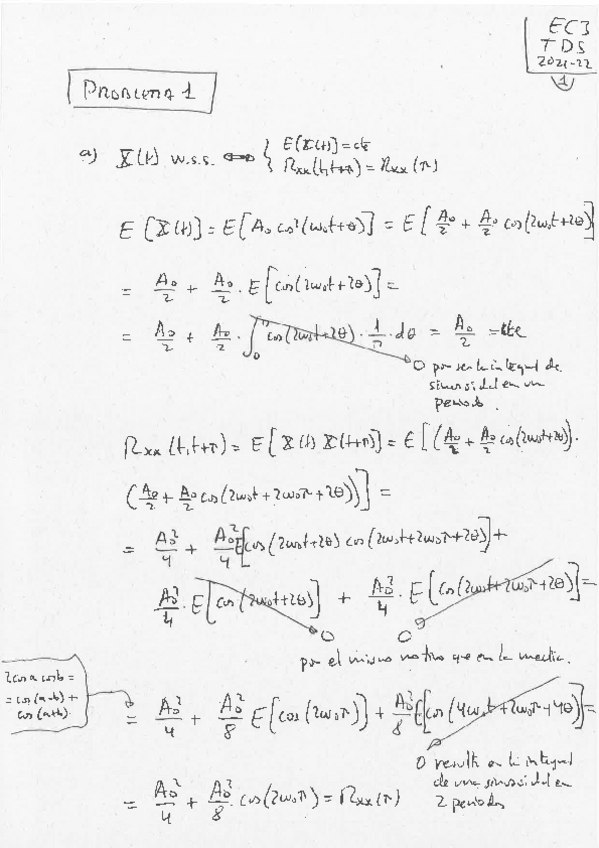 EC3
TDS
2021-22
1
PROBLEMA 1
a) X(t) w.s.s. ⟺ { E[X(t)] = cte
R_XX(t,t+τ) = R_XX(τ)
E[X(t)] = E[A₀ cos²(ω₀t+θ)] = E[A₀/2 + A₀/2 cos(2ω₀t+2θ)]
= A₀/2 + A₀/2 · E[cos(2ω₀t+2θ)] =
= A₀/2 + A₀/2 · ∫₀^π cos(2ω₀t+2θ) · 1/π · dθ = A₀/2 = cte
0 por ser la integral de
sinusoidal en un
periodo.
R_XX(t,t+τ) = E[X(t) X(t+τ)] = E[(A₀/2 + A₀/2 cos(2ω₀t+2θ)) ·
(A₀/2 + A₀/2 cos(2ω₀t+2ω₀τ+2θ))] =
= A₀²/4 + A₀²/4 E[cos(2ω₀t+2θ) cos(2ω₀t+2ω₀τ+2θ)] +
A₀²/4 · E[cos(2ω₀t+2θ)] + A₀²/4 · E[cos(2ω₀t+2ω₀τ+2θ)] =
0 0
por el mismo motivo que en la media.
2cos a cos b =
= cos(a-b) +
cos(a+b).
= A₀²/4 + A₀²/8 E[cos(2ω₀τ)] + A₀²/8 E[cos(4ω₀t+2ω₀τ+4θ)] =
0 resulta en la integral
de una sinusoidal en
2 periodos
= A₀²/4 + A₀²/8 · cos(2ω₀τ) = R_XX(τ)